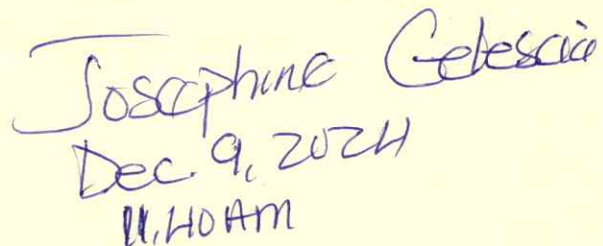 Josephine Celescia
Dec. 9, 2024
11.40 AM